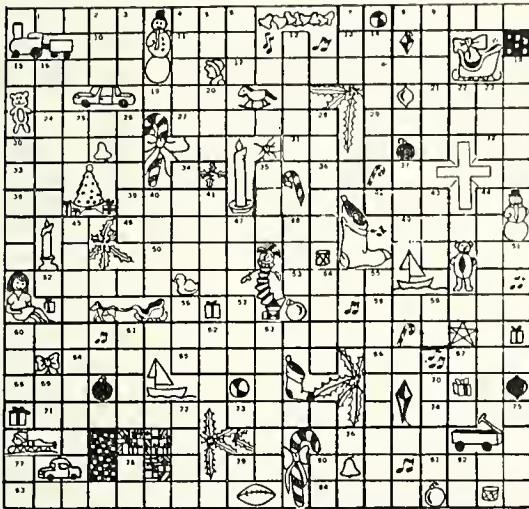 1 2 3 4 5 6 7 8 9
10 11 12 13 14
15 16 17 18
19 20 21 22 23
24 25 26 27 28 29
30 31 32
33 34 35 36 37
38 39 40 41 42 43 44
45 46 47 48 49
50 51
52 53 54 55
56 57 58 59
60 61 62 63
64 65 66 67
68 69 70
71 72 73 74 75
76
77 78 79 80 81 82
83 84